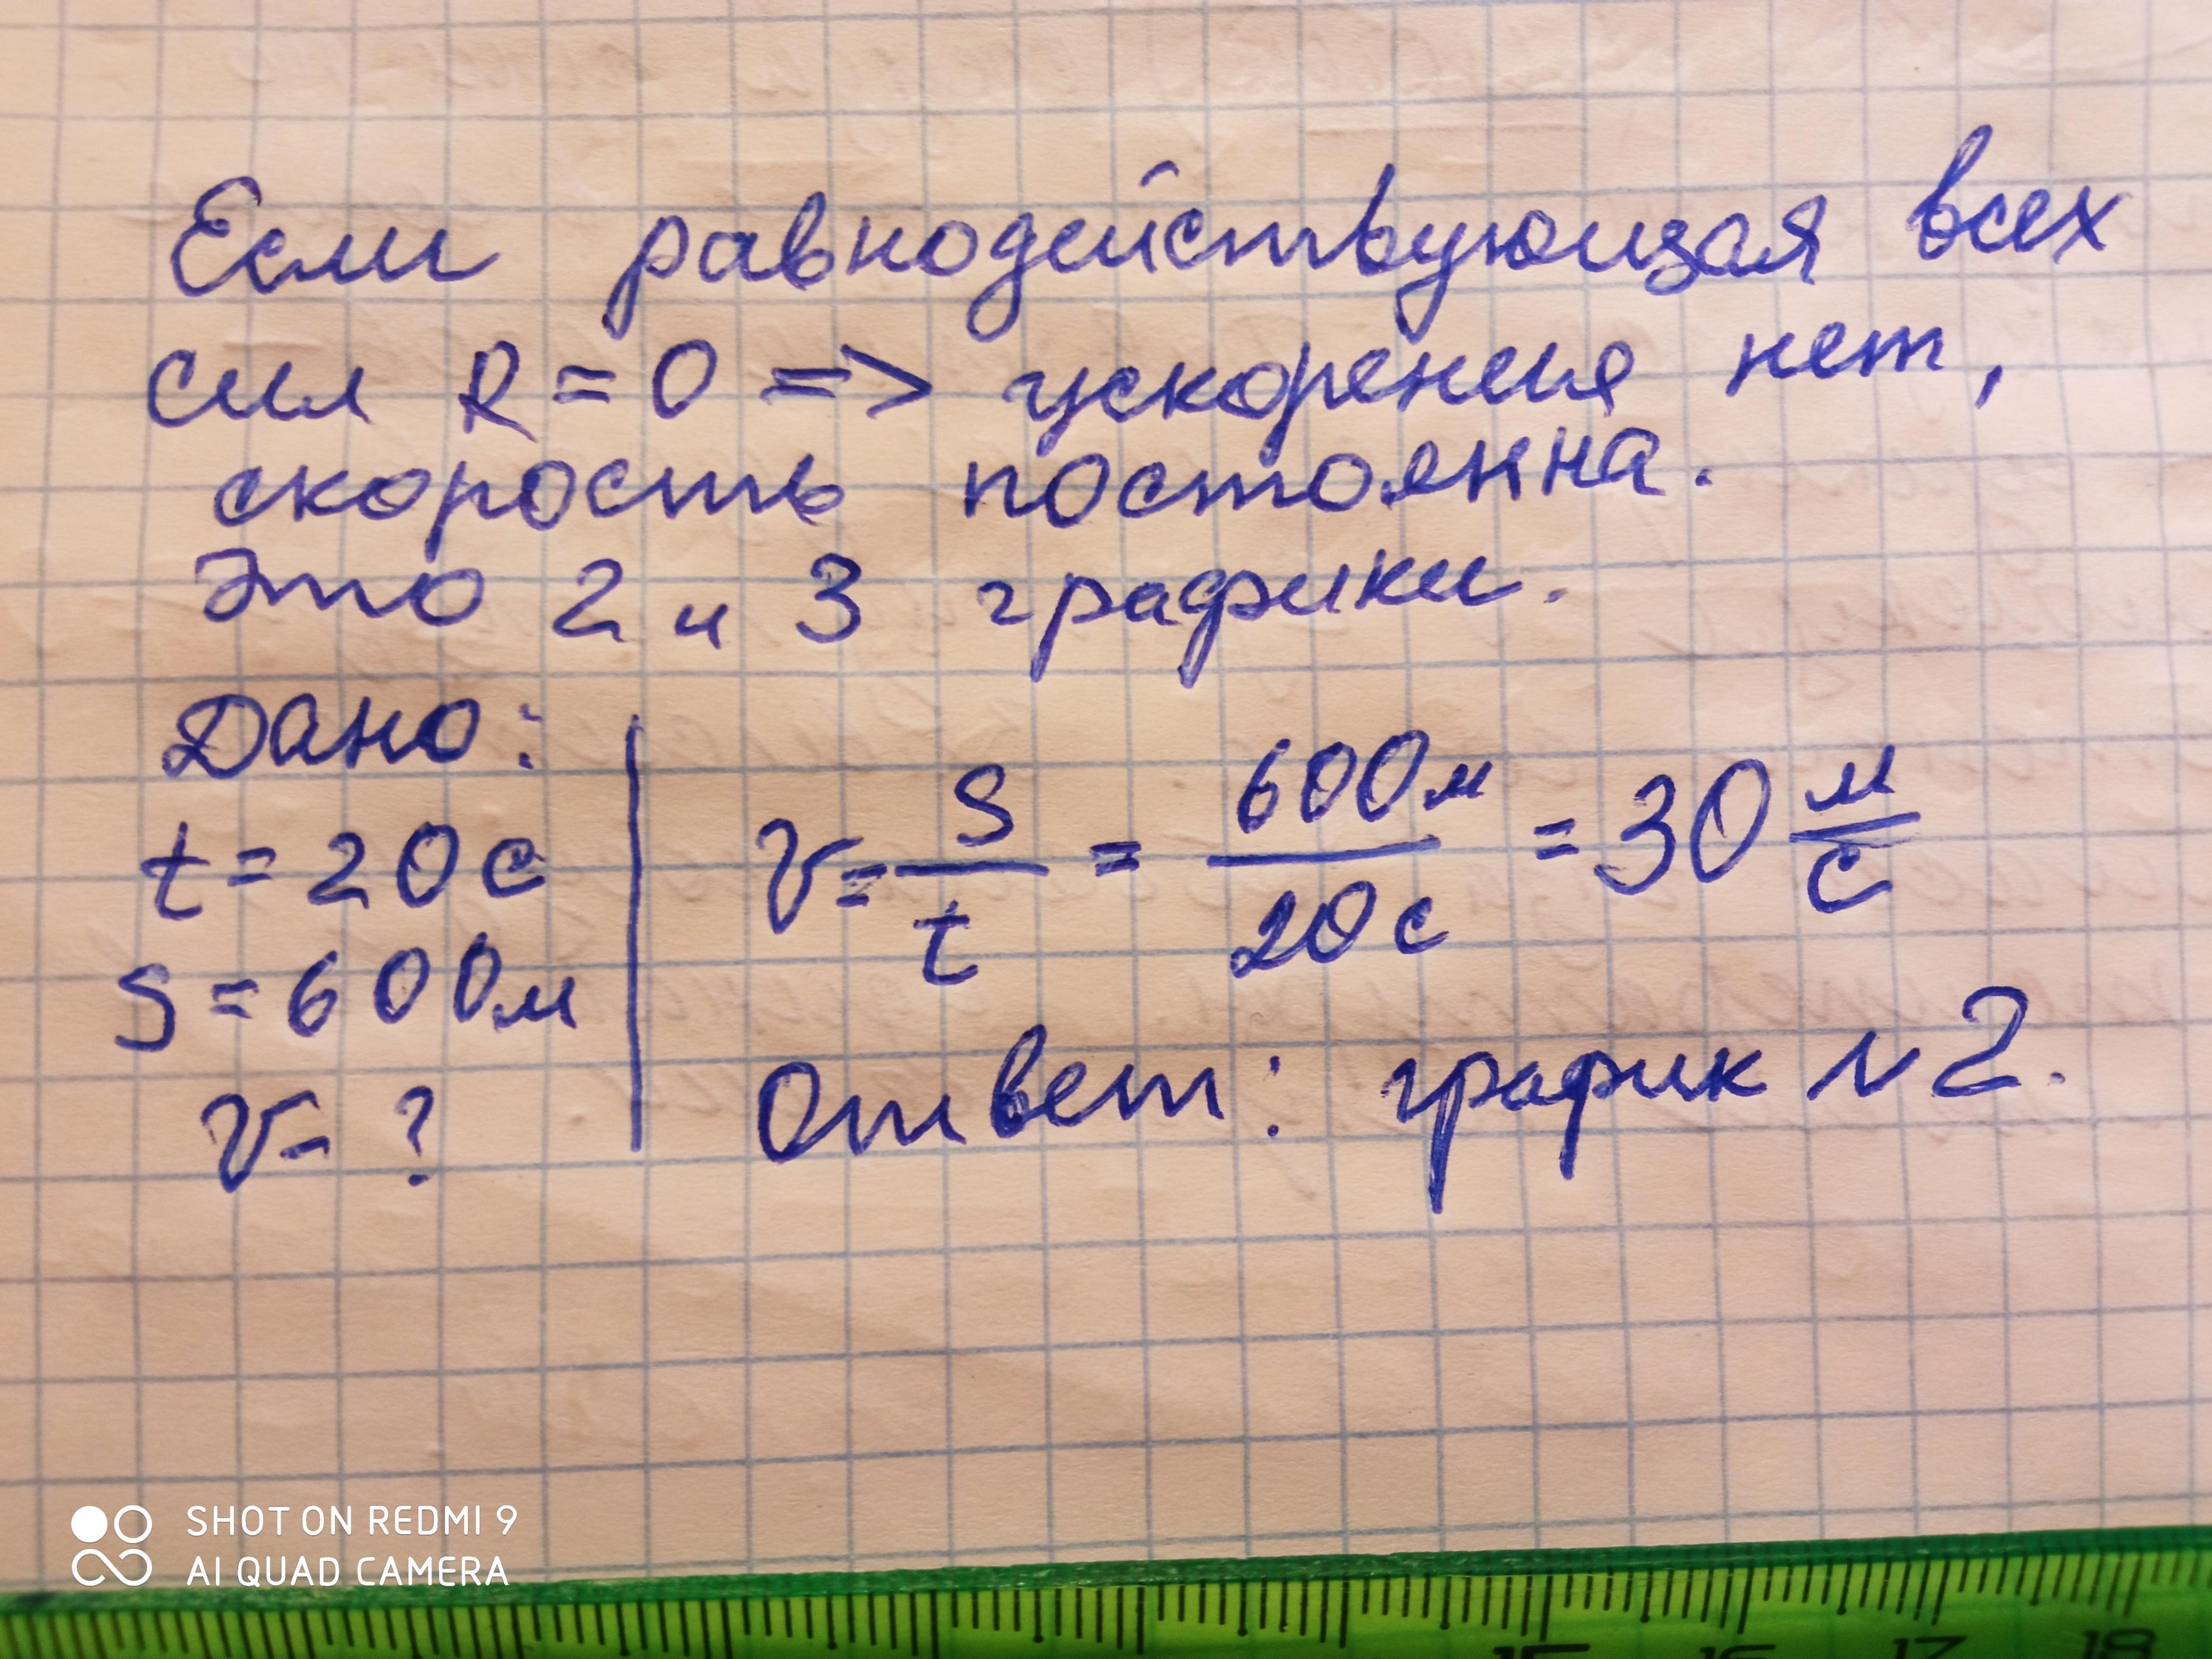 Если равнодействующая всех
сил R = 0 => ускорения нет,
скорость постоянна.
Это 2 и 3 графики.
Дано:
t = 20 с
S = 600 м
v - ?
v = S/t = 600 м/20 с = 30 м/с
Ответ: график N 2.
SHOT ON REDMI 9
AI QUAD CAMERA
15 16 17 18